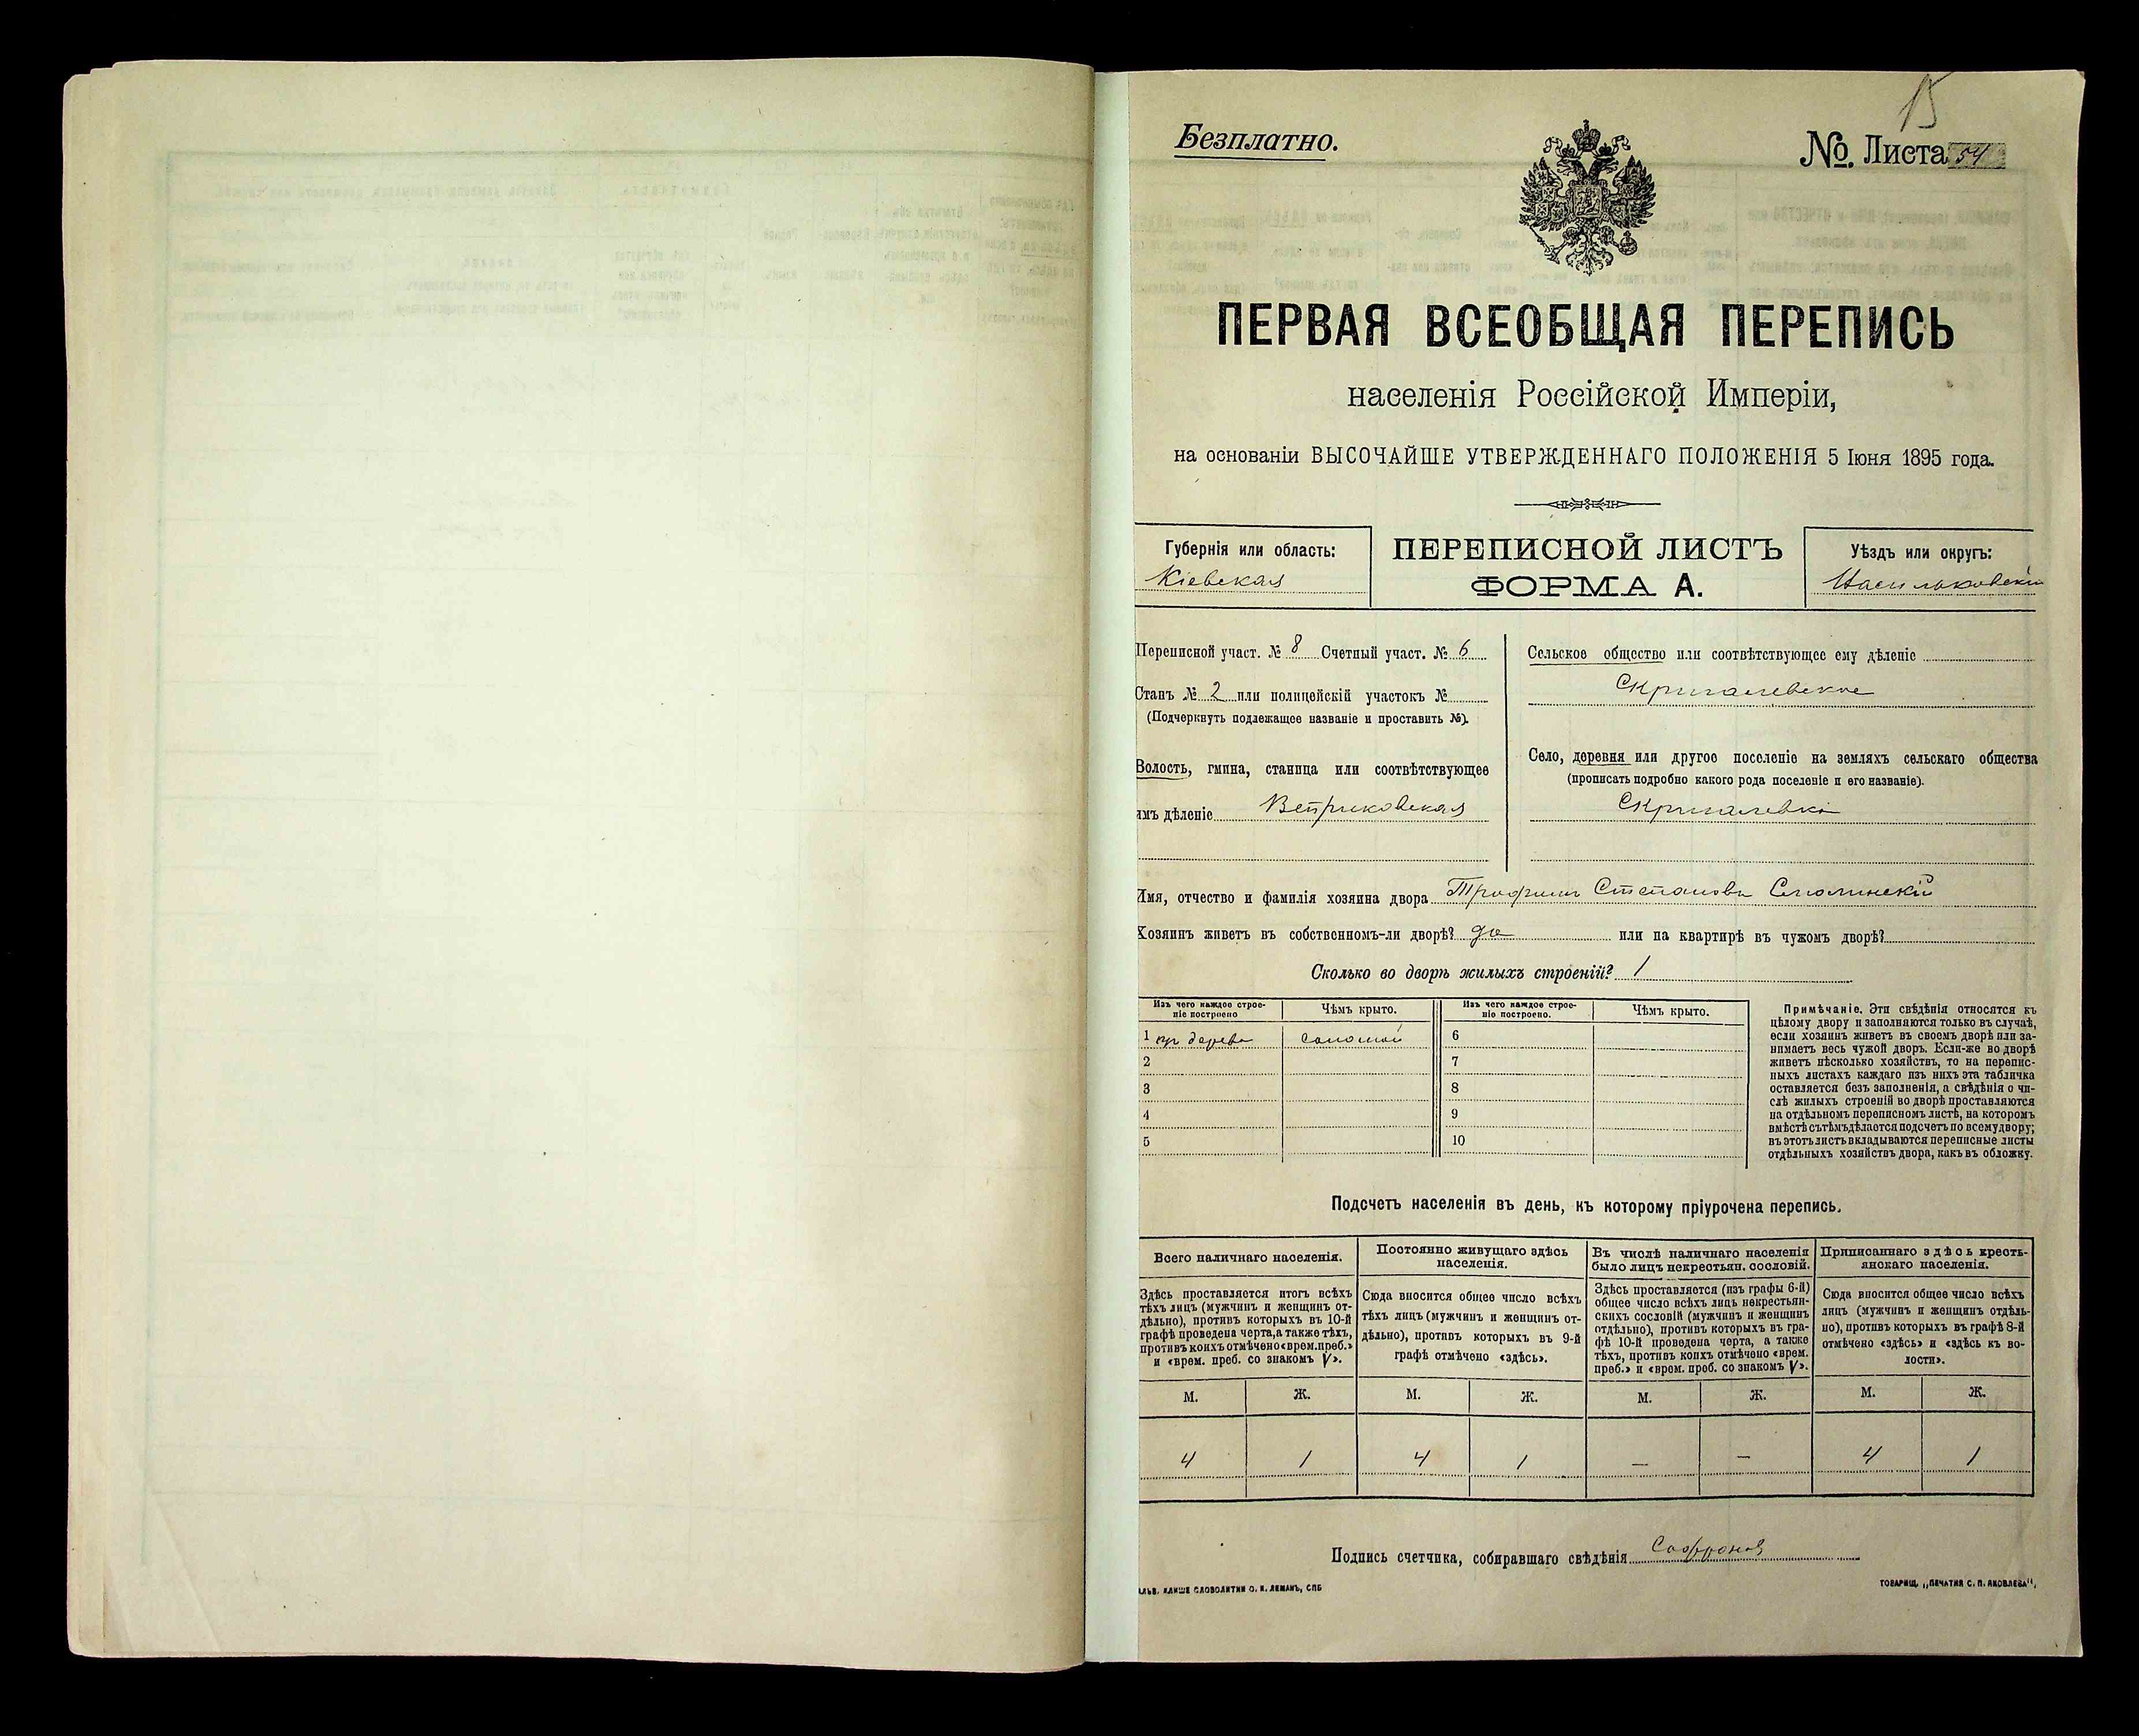 15
Безплатно.
№. Листа 54
ПЕРВАЯ ВСЕОБЩАЯ ПЕРЕПИСЬ
населенія Россійской Имперіи,
на основаніи ВЫСОЧАЙШЕ УТВЕРЖДЕННАГО ПОЛОЖЕНІЯ 5 Іюня 1895 года.
Губернія или область:
Кіевская
ПЕРЕПИСНОЙ ЛИСТЪ
ФОРМА А.
Уѣздъ или округъ:
Переписной участ. № 8 Счетный участ. № 6
Станъ № 2 или полицейскій участокъ №
(Подчеркнуть подлежащее названіе и проставить №).
Волость, гмина, станица или соотвѣтствующее
имъ дѣленіе Веприковская
Сельское общество или соотвѣтствующее ему дѣленіе
Скригалевское
Село, деревня или другое поселеніе на земляхъ сельскаго общества
(прописать подробно какого рода поселеніе и его названіе).
Скригалевка
Имя, отчество и фамилія хозяина двора Трофимъ Степановъ Смолинскій
Хозяинъ живетъ въ собственномъ-ли дворѣ? да или на квартирѣ въ чужомъ дворѣ?
Сколько во дворѣ жилыхъ строеній? 1
Изъ чего каждое строе-
ніе построено
Чѣмъ крыто.
Изъ чего каждое строе-
ніе построено.
Чѣмъ крыто.
1 дерева соломой 6
2 7
3 8
4 9
5 10
Примѣчаніе. Эти свѣдѣнія относятся къ
цѣлому двору и заполняются только въ случаѣ,
если хозяинъ живетъ въ своемъ дворѣ или за-
нимаетъ весь чужой дворъ. Если-же во дворѣ
живетъ нѣсколько хозяйствъ, то на перепис-
ныхъ листахъ каждаго изъ нихъ эта табличка
оставляется безъ заполненія, а свѣдѣнія о чи-
слѣ жилыхъ строеній во дворѣ проставляются
на отдѣльномъ переписномъ листѣ, на которомъ
вмѣстѣ съ тѣмъ дѣлается подсчетъ по всему двору;
въ этотъ листъ вкладываются переписные листы
отдѣльныхъ хозяйствъ двора, какъ въ обложку.
Подсчетъ населенія въ день, къ которому пріурочена перепись.
Всего наличнаго населенія.
Здѣсь проставляется итогъ всѣхъ
тѣхъ лицъ (мужчинъ и женщинъ от-
дѣльно), противъ которыхъ въ 10-й
графѣ проведена черта, а также тѣхъ,
противъ коихъ отмѣчено «врем. преб.»
и «врем. преб. со знакомъ V».
Постоянно живущаго здѣсь
населенія.
Сюда вносится общее число всѣхъ
тѣхъ лицъ (мужчинъ и женщинъ от-
дѣльно), противъ которыхъ въ 9-й
графѣ отмѣчено «здѣсь».
Въ числѣ наличнаго населенія
было лицъ некрестьян. сословій.
Здѣсь проставляется (изъ графы 6-й)
общее число всѣхъ лицъ некрестьян-
скихъ сословій (мужчинъ и женщинъ
отдѣльно), противъ которыхъ въ гра-
фѣ 10-й проведена черта, а также
тѣхъ, противъ коихъ отмѣчено «врем.
преб.» и «врем. преб. со знакомъ V».
Приписаннаго здѣсь кресть-
янскаго населенія.
Сюда вносится общее число всѣхъ
лицъ (мужчинъ и женщинъ отдѣль-
но), противъ которыхъ въ графѣ 8-й
отмѣчено «здѣсь» и «здѣсь къ во-
лости».
М. Ж. М. Ж. М. Ж. М. Ж.
4 1 4 1 — — 4 1
Подпись счетчика, собиравшаго свѣдѣнія Софронов
КЛИШЕ СЛОВОЛИТНИ О. И. ЛЕМАНЪ, СПБ
ТОВАРИЩ. „ПЕЧАТНЯ С. П. ЯКОВЛЕВА“,